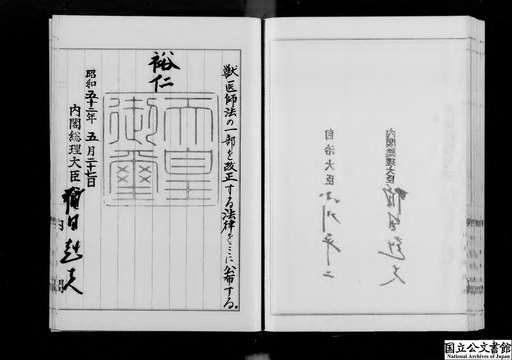 獣医師法の一部を改正する法律をここに公布する。
裕仁
天皇御璽
昭和五十二年五月二十七日
内閣総理大臣 福田赳夫
内閣総理大臣 福田赳夫
自治大臣 小川平二
国立公文書館
National Archives of Japan